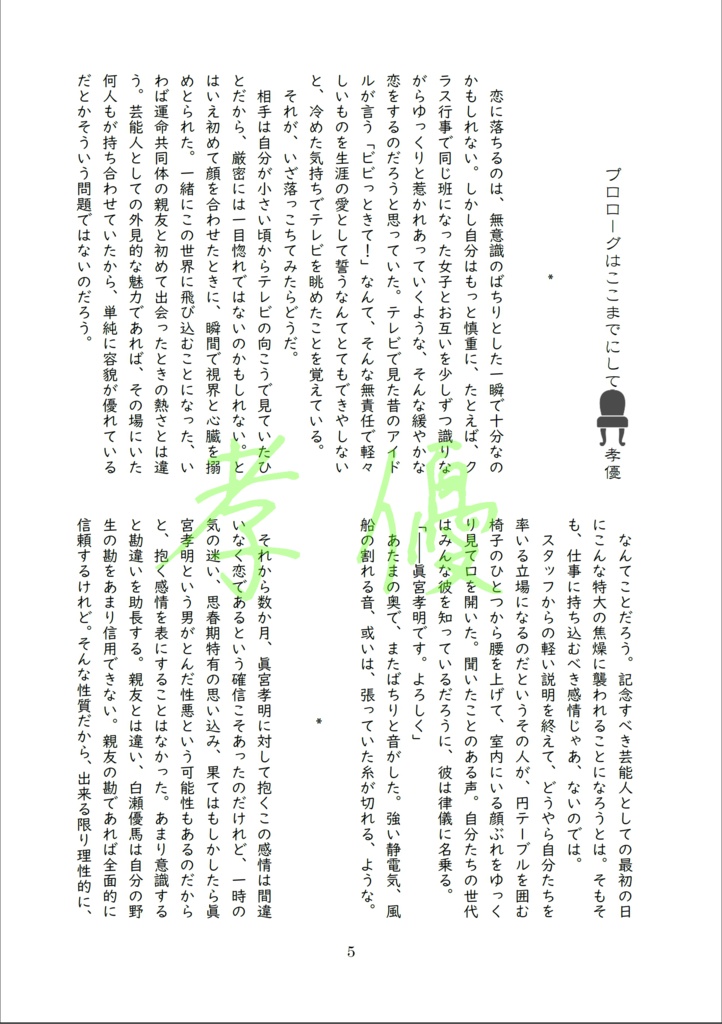 プロローグはここまでにして
孝優
*
恋に落ちるのは、無意識のばちりとした一瞬で十分なの
かもしれない。しかし自分はもっと慎重に、たとえば、ク
ラス行事で同じ班になった女子とお互いを少しずつ識りな
がらゆっくりと惹かれあっていくような、そんな緩やかな
恋をするのだろうと思っていた。テレビで見た昔のアイド
ルが言う「ビビっときて！」なんて、そんな無責任で軽々
しいものを生涯の愛として誓うなんてとてもできやしない
と、冷めた気持ちでテレビを眺めたことを覚えている。
それが、いざ落っこちてみたらどうだ。
相手は自分が小さい頃からテレビの向こうで見ていたひ
とだから、厳密には一目惚れではないのかもしれない。と
はいえ初めて顔を合わせたときに、瞬間で視界と心臓を搦
めとられた。一緒にこの世界に飛び込むことになった、い
わば運命共同体の親友と初めて出会ったときの熱さとは違
う。芸能人としての外見的な魅力であれば、その場にいた
何人もが持ち合わせていたから、単純に容貌が優れている
だとかそういう問題ではないのだろう。
なんてことだろう。記念すべき芸能人としての最初の日
にこんな特大の焦燥に襲われることになろうとは。そもそ
も、仕事に持ち込むべき感情じゃあ、ないのでは。
スタッフからの軽い説明を終えて、どうやら自分たちを
率いる立場になるのだというその人が、円テーブルを囲む
椅子のひとつから腰を上げて、室内にいる顔ぶれをゆっく
り見て口を開いた。聞いたことのある声。自分たちの世代
はみんな彼を知っているだろうに、彼は律儀に名乗る。
「――眞宮孝明です。よろしく」
あたまの奥で、またばちりと音がした。強い静電気、風
船の割れる音、或いは、張っていた糸が切れる、ような。
*
それから数か月、眞宮孝明に対して抱くこの感情は間違
いなく恋であるという確信こそあったのだけれど、一時の
気の迷い、思春期特有の思い込み、果てはもしかしたら眞
宮孝明という男がとんだ性悪という可能性もあるのだから
と、抱く感情を表にすることはなかった。あまり意識する
と勘違いを助長する。親友とは違い、白瀬優馬は自分の野
生の勘をあまり信用できない。親友の勘であれば全面的に
信頼するけれど。そんな性質だから、出来る限り理性的に、
孝優
5